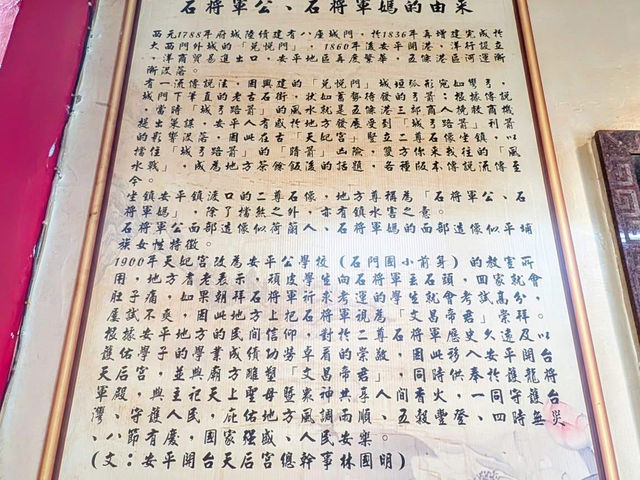 石將軍公、石將軍媽的由來
西元1788年府城陸續建有八座城門，於1836年再增建完成於
大西門外城的「兌悅門」，1860年後安平開港，洋行設立
、洋商貿易進出口，安平地區再度繁華，五條港區河運漸
漸沒落。
有一流傳說法，因興建的「兌悅門」城垣弧形宛如彎弓，
城門下筆直的老古石街，狀如蓄勢待發的弓箭，根據傳說
，當時「城弓路箭」的風水就是五條港三郊商人挽救商機
提出策謀，安平人有感於地方發展受到「城弓路箭」利箭
的影響沒落，因此在古「天妃宮」豎立二尊石像坐鎮，以
擋住「城弓路箭」的「路箭」凶險，雙方你來我往的「風
水戰」，成為地方茶餘飯後的話題，各種版本傳說流傳至
今。
坐鎮安平鎮渡口的二尊石像，地方尊稱為「石將軍公、石
將軍媽」，除了擋煞之外，亦有鎮水害之意。
石將軍公面部造像似荷蘭人、石將軍媽的面部造像似平埔
族女性特徵。
1900年天妃宮改為安平公學校（石門國小前身）的教室所
用，地方耆老表示，頑皮學生向石將軍丟石頭，回家就會
肚子痛，如果朝拜石將軍祈求考運的學生就會考試高分，
屢試不爽，因此地方上把石將軍視為「文昌帝君」崇拜。
根據安平地方的民間信仰，對於二尊石將軍歷史久遠及以
護佑學子的學業成績功勞卓著的崇敬，因此移入安平開台
天后宮，並與廟方雕塑「文昌帝君」，同時供奉於護龍將
軍殿，與主祀天上聖母暨眾神共享人間香火，一同守護台
灣、守護人民，庇佑地方風調雨順、五穀豐登、四時無災
、八節有慶，國家強盛、人民安樂。
(文：安平開台天后宮總幹事林國明)